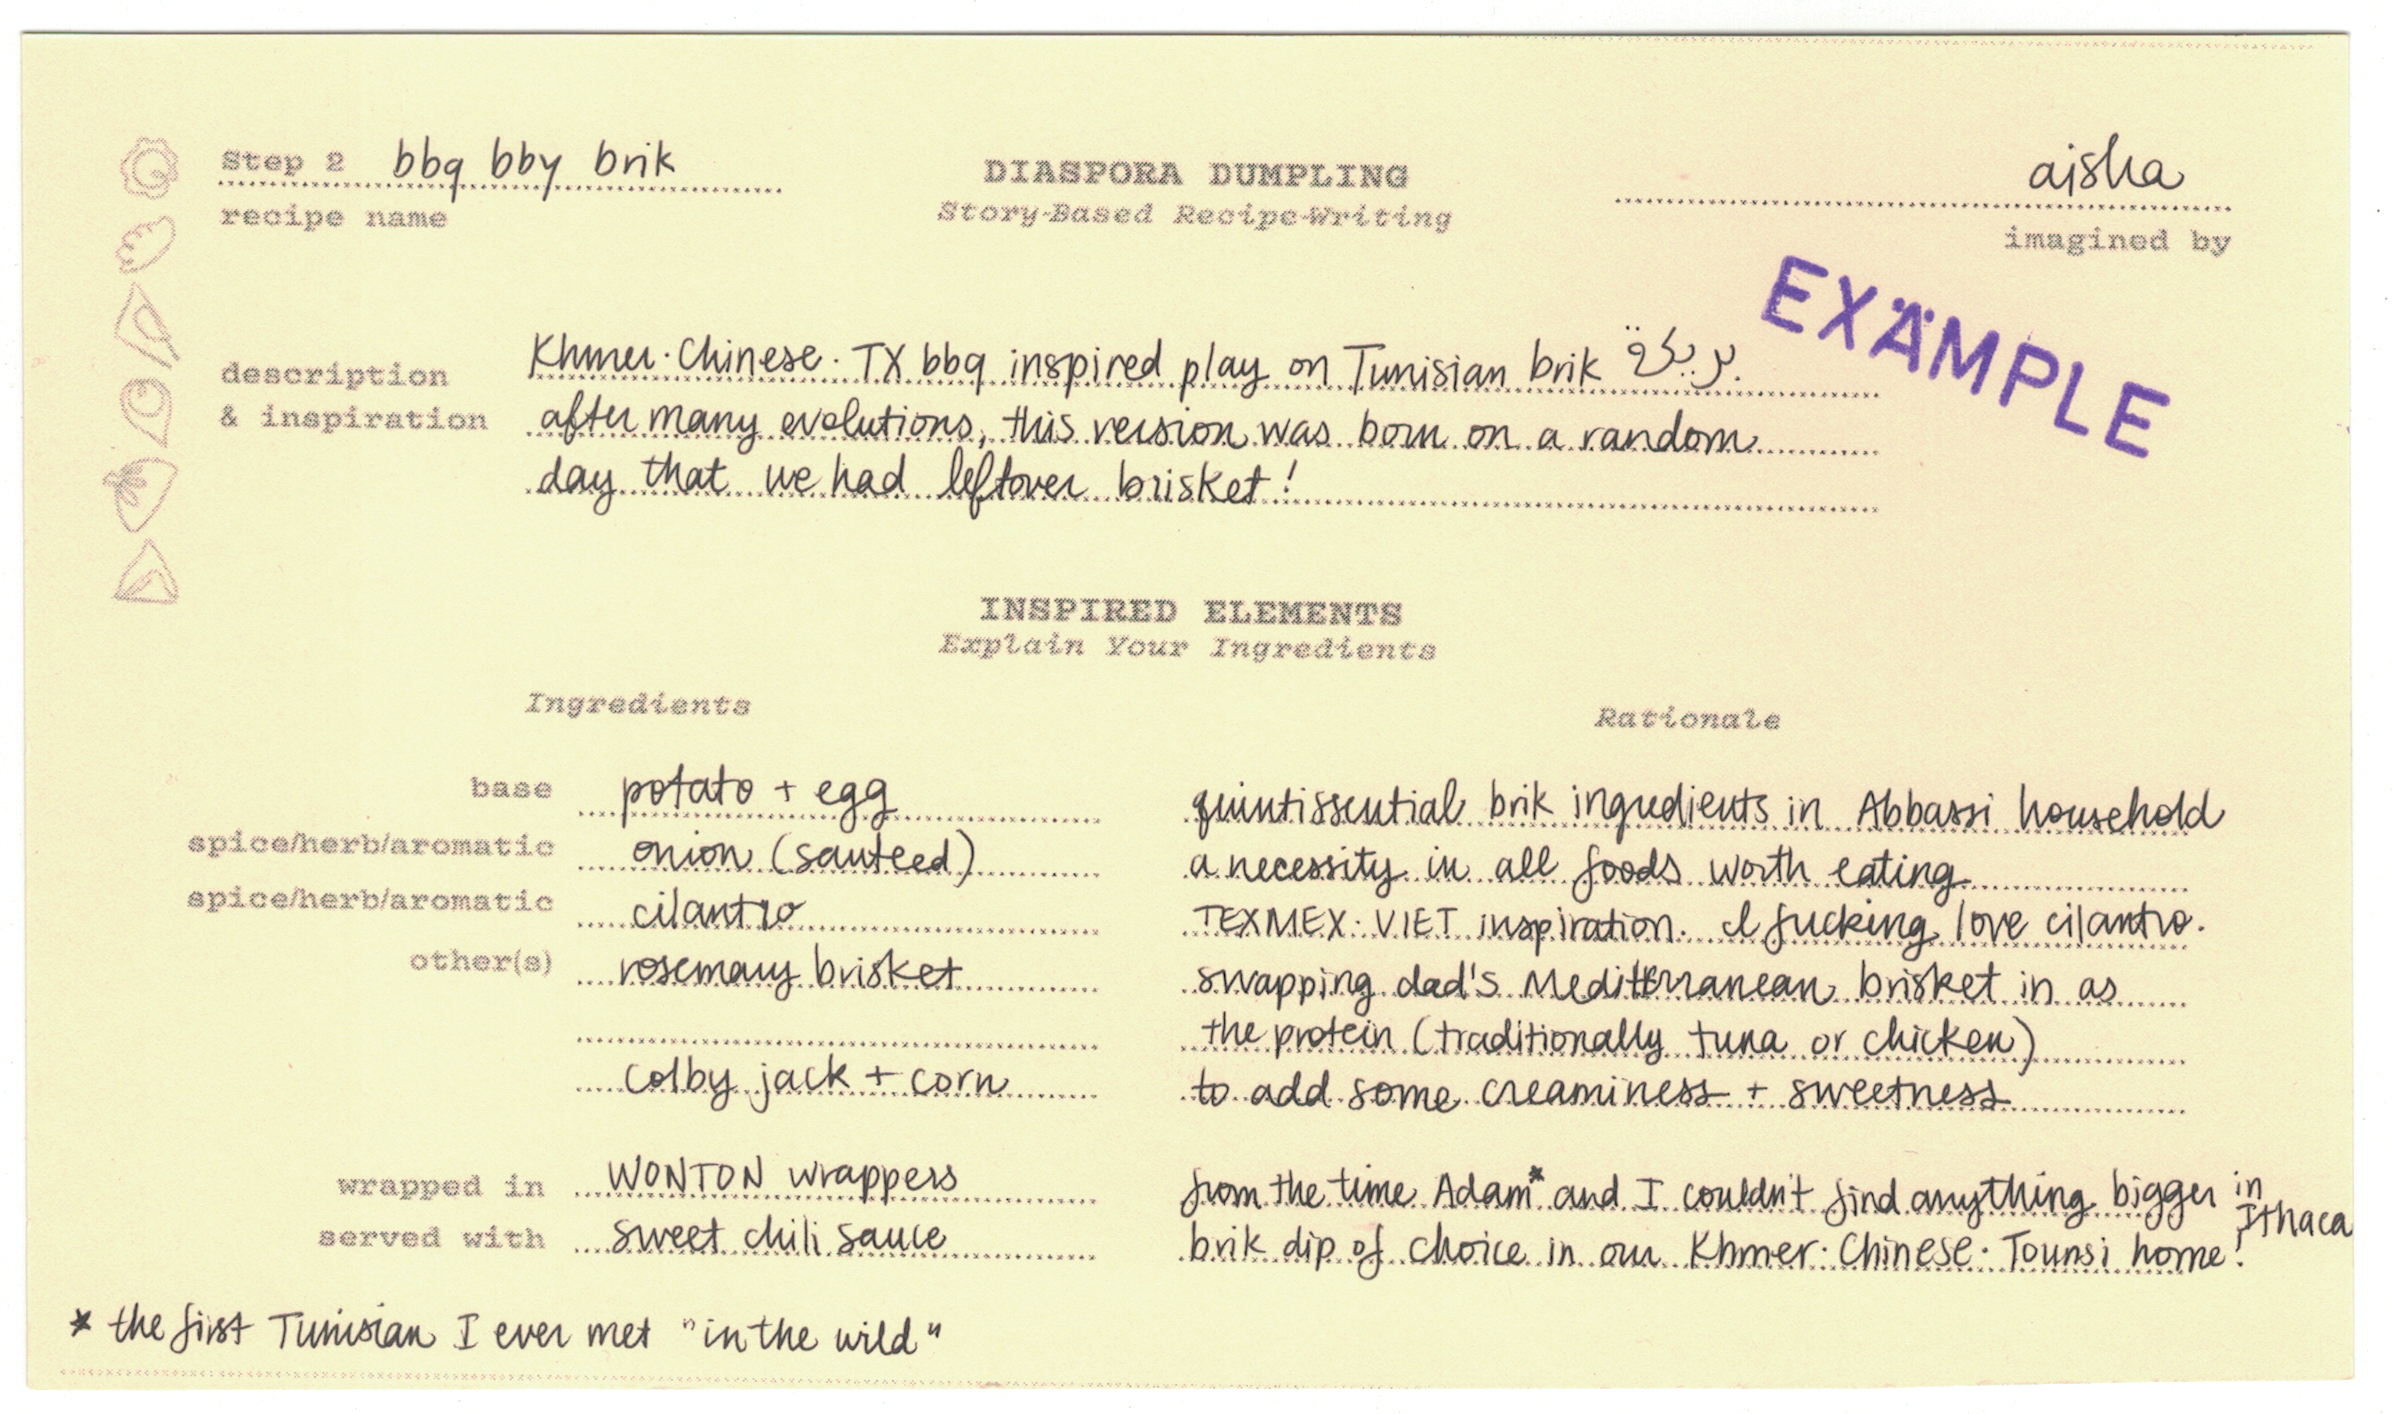 Step 2 bbq bby brik
recipe name
DIASPORA DUMPLING
Story-Based Recipe-Writing
aisha
imagined by
EXÄMPLE
description
& inspiration
Khmer·Chinese·TX bbq inspired play on Tunisian brik بريكة.
after many evolutions, this version was born on a random
day that we had leftover brisket!
INSPIRED ELEMENTS
Explain Your Ingredients
Ingredients Rationale
base potato + egg quintissential brik ingredients in Abbassi household
spice/herb/aromatic onion (sauteed) a necessity in all foods worth eating
spice/herb/aromatic cilantro TEXMEX·VIET inspiration. I fucking love cilantro.
other(s) rosemary brisket swapping dad's Mediterranean brisket in as
the protein (traditionally tuna or chicken)
colby jack + corn to add some creaminess + sweetness
wrapped in WONTON wrappers from the time Adam* and I couldn't find anything bigger in Ithaca
served with sweet chili sauce brik dip of choice in our Khmer·Chinese·Tounsi home!
* the first Tunisian I ever met "in the wild"